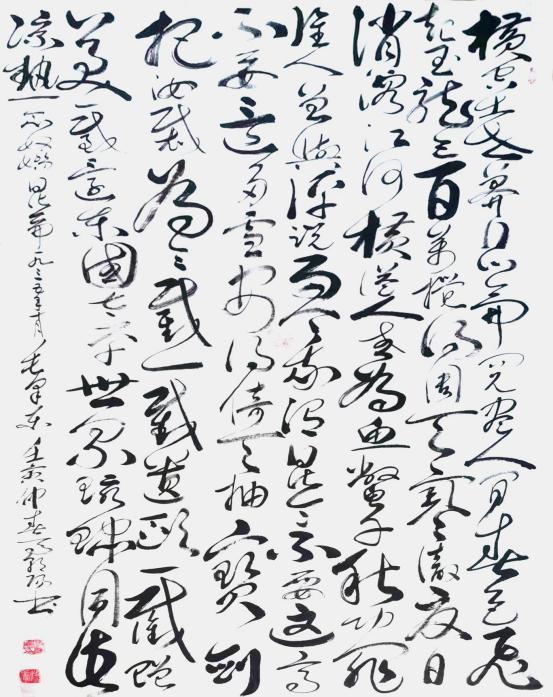 横空出世莽昆仑阅尽人间春色飞
起玉龙三百万搅得周天寒彻夏日
消溶江河横溢人或为鱼鳖千秋功罪
谁人曾与评说而今我谓昆仑不要这高
不要这多雪安得倚天抽宝剑
把汝裁为三截一截遗欧一截赠
美一截还东国太平世界环球同此
凉热 念奴娇昆仑一九三五年十月毛泽东 壬寅仲春 书